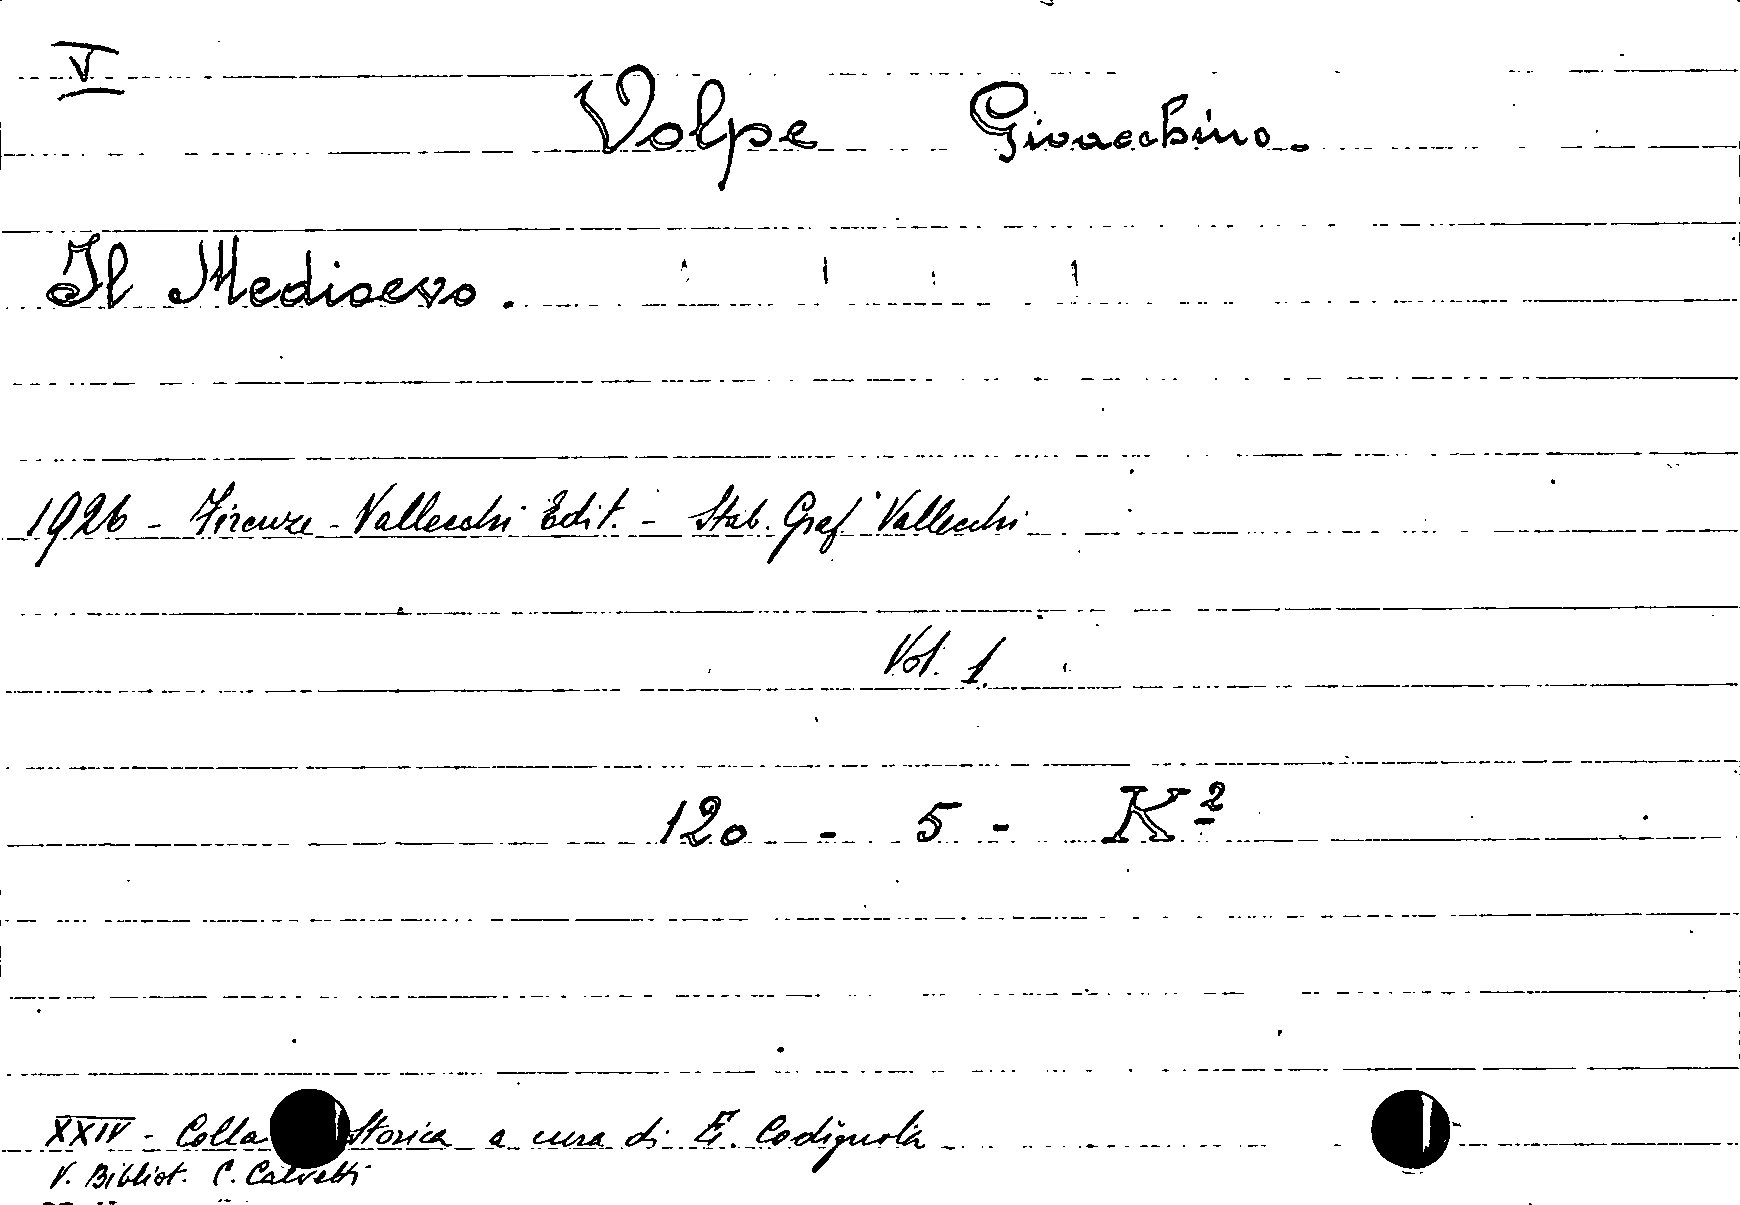 V
Volpe Gioacchino.
Il Medioevo.
1926 - Firenze - Vallecchi Edit. - Stab. Graf. Vallecchi
Vol. 1.
120 - 5 - K²
XXIV - Colla Storica a cura di E. Codignola
V. Bibliot. C. Calvetti